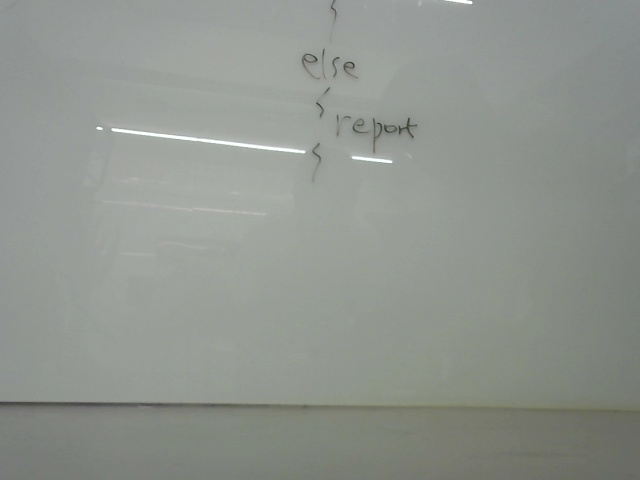 }
else
{
report
}